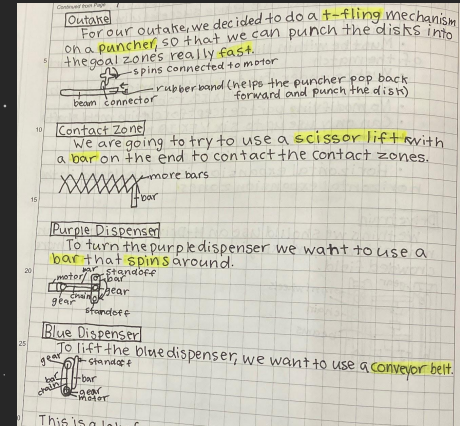 Continued from Page
Outake
For our outake, we decided to do a t-fling mechanism
on a puncher, so that we can punch the disks into
the goal zones really fast.
5
spins connected to motor
rubberband (helps the puncher pop back
forward and punch the disk)
beam connector
10
Contact Zone
We are going to try to use a scissor lift with
a bar on the end to contact the contact zones.
more bars
15
bar
Purple Dispenser
To turn the purple dispenser we want to use a
bar that spins around.
20
bar standoff
motor bar
chain gear
gear
standoff
Blue Dispenser
25
To lift the blue dispenser, we want to use a conveyor belt.
gear standoff
bar bar
chain gear
motor
This is a